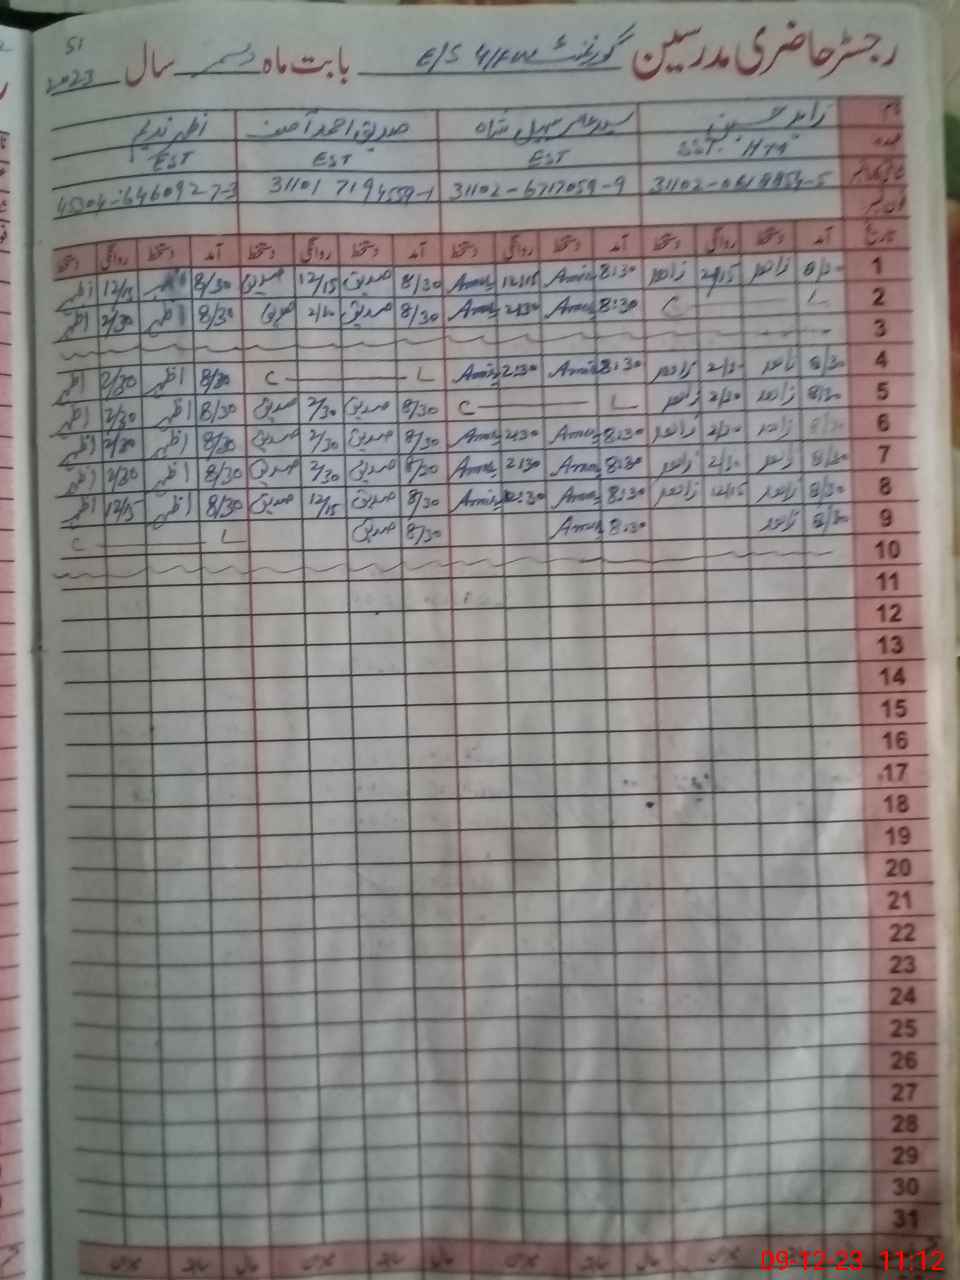 رجسٹر حاضری مدرسین گورنمنٹ E/S 4/FW بابت ماہ دسمبر سال 2023
51
نام زاہد حسین سید عامر سہیل شاہ صدیق احمد آصف اظہر ندیم
عہدہ SST "HTR" EST EST EST
31102-6717059-9 31101 7194559-1
تاریخ آمد دستخط روانگی دستخط آمد دستخط روانگی دستخط آمد دستخط روانگی دستخط آمد دستخط روانگی دستخط
1 8/30 زاہد 12/15 زاہد 8:30 Amir 12:15 Amir 8/30 صدیق 12/15 صدیق 8/30 اظہر 12/15 اظہر
2 L C 8:30 Amir 2:30 Amir 8/30 صدیق 2/30 صدیق 8/30 اظہر 2/30 اظہر
3
4 8/30 زاہد 2/30 زاہد 8:30 Amir 2:30 Amir L C 8/30 اظہر 2/30 اظہر
5 8/30 زاہد 2/30 زاہد L C 8/30 صدیق 2/30 صدیق 8/30 اظہر 2/30 اظہر
6 8/30 زاہد 2/30 زاہد 8:30 Amir 2:30 Amir 8/30 صدیق 2/30 صدیق 8/30 اظہر 2/30 اظہر
7 8/30 زاہد 2/30 زاہد 8:30 Amir 2:30 Amir 8/30 صدیق 2/30 صدیق 8/30 اظہر 2/30 اظہر
8 8/30 زاہد 12/15 زاہد 8:30 Amir Amir 8/30 صدیق 12/15 صدیق 8/30 اظہر 12/15 اظہر
9 8/30 زاہد 8:30 Amir 8/30 صدیق L C
10
11
12
13
14
15
16
17
18
19
20
21
22
23
24
25
26
27
28
29
30
31
09-12-23 11:12